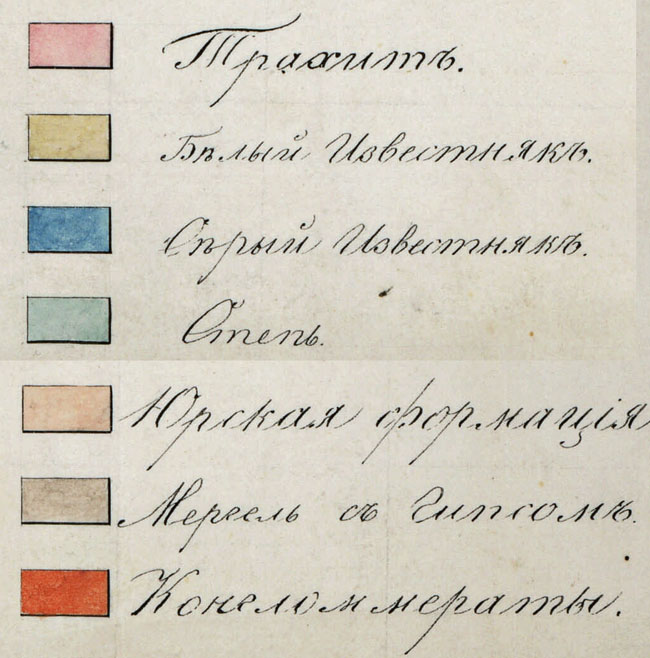 Трахитъ.
Бѣлый Известнякъ.
Сѣрый Известнякъ.
Степь.
Юрская формація
Мергель съ Гипсомъ.
Конгломмераты.